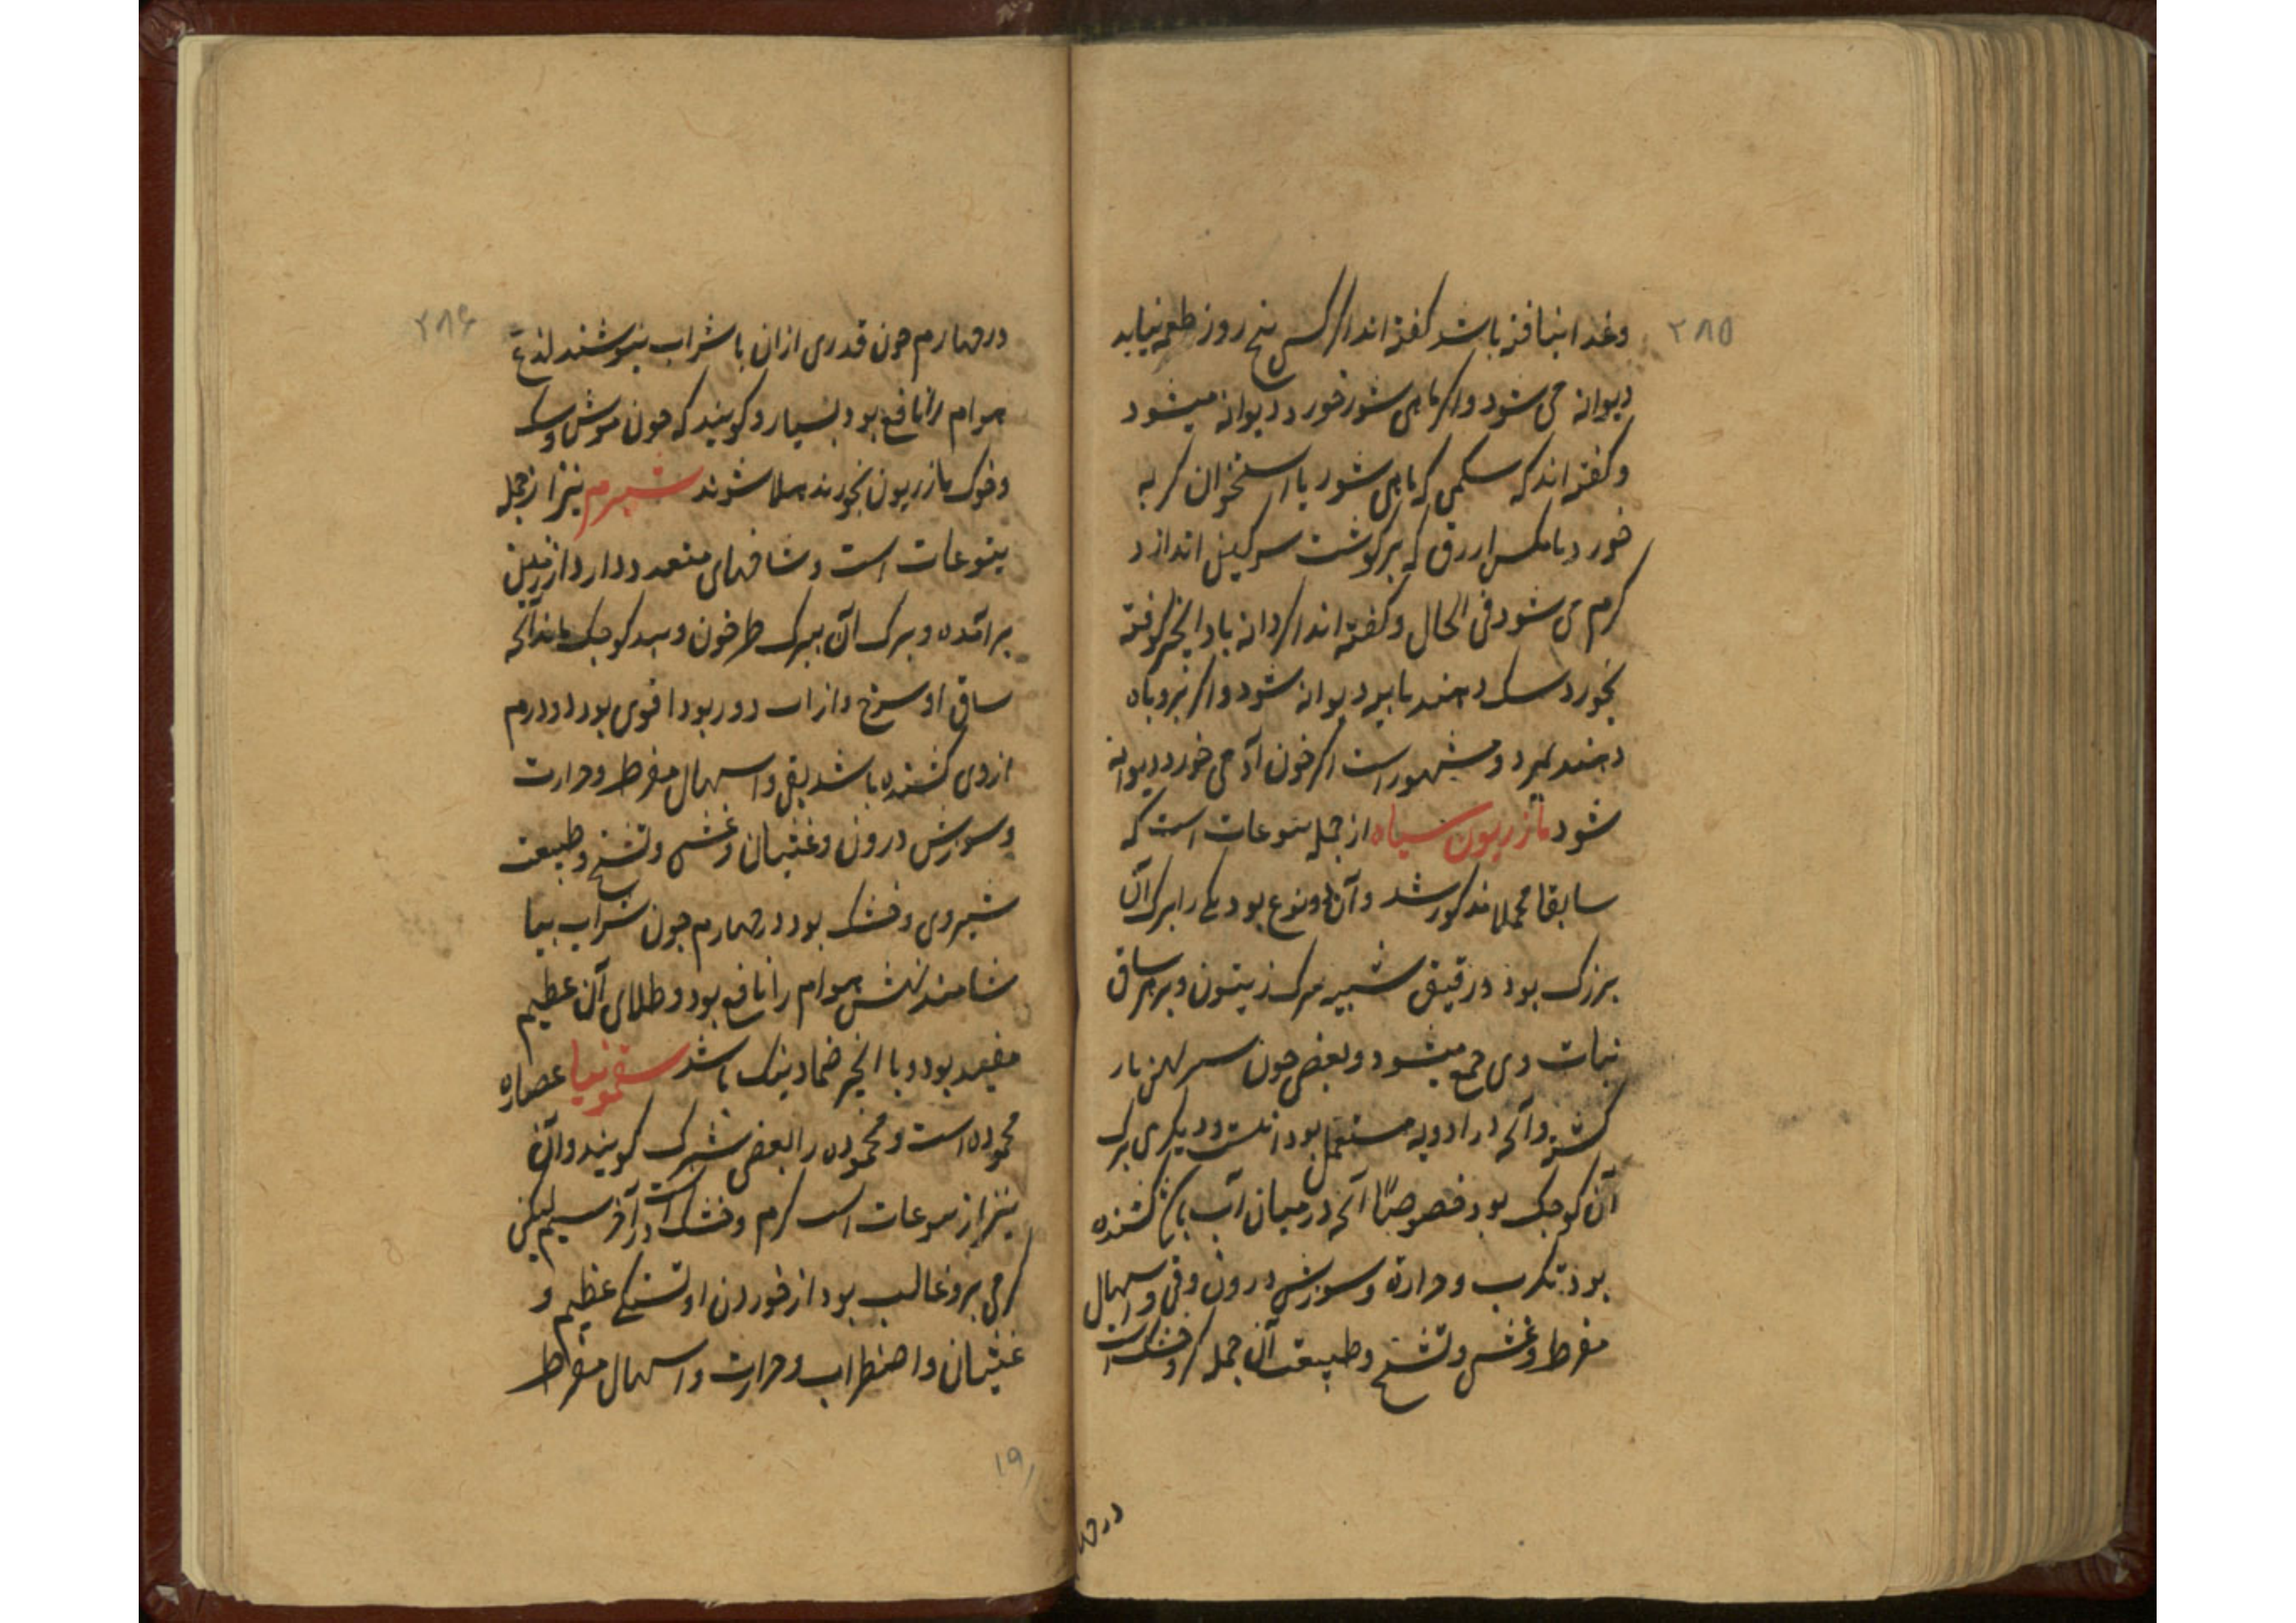 ۲۸۵
وغذا نیافته باشد کفته اند اکر کسی پنج روز طعمه نیابد
دیوانه می شود واکر ماهی شور خورد دیوانه میشود
وکفته اند که سکی که ماهی شور یا استخوان کربه
خورد یا مکس ازرق که بر کوشت سرکین اندازد
کرم می شود فی الحال وکفته اند اکر دانه باد انجیر کوفته
بخورد سک دهند یا بیر دیوانه شود واکر بروباه
دهند بمیرد ومشهور است اکر خون آدمی خورد دیوانه
شود مازریون سیاه از جمله یتوعات است که
سابقا مجملا مذکور شد وآن دو نوع بود یکی را برک آن
بزرک بود ورقیق شبیه ببرک زیتون وبر سر ساق
نبات وی جمع میشود وبعضی چون سر بهن بار
کشته وآنچه در ادویه مستعمل بود اینست ودیکری برک
آن کوچک بود خصوصًا آنچه در میان آب باشد کشنده
بود بکرب وحرارة وسوزش درون وقی واسهال
مفرط وغشی وتشنج وطبیعت آن جمله کرم وخشک است
در چها
۲۸۶
در چهارم چون قدری ازان با شراب بنوشند لذع
هوام را نافع بود بسیار وکویند که چون موش وسک
وخوک مازریون بخورند هلاک شوند شبرم نیز از جمله
یتوعات است وشاخهای متعدد دارد از زمین
برآمده وبرک آن ببرک طرخون وبید کوچک ماند آنچه
ساق او سرخ واز آب دور بود اقوی بود دو درم
ازوی کشنده باشد بقی واسهال مفرط وحرارت
وسوزش درون وغثیان وغشی وتشنج وطبیعت
شبر وی وخشک بود در چهارم چون شراب بیا
شامند نهش هوام را نافع بود وطلای آن عظیم
مفید بود وبا انجیر ضماد نیک باشد سقمونیا عصاره
محموده است ومحموده را بعضی شبرک کویند وآن
نیز از یتوعات است کرم وخشک است در آخر سیم لیکن
کرمی برو غالب بود از خوردن او تشنکی عظیم و
غثیان واضطراب وحرارت واسهال مفرط
۱۹